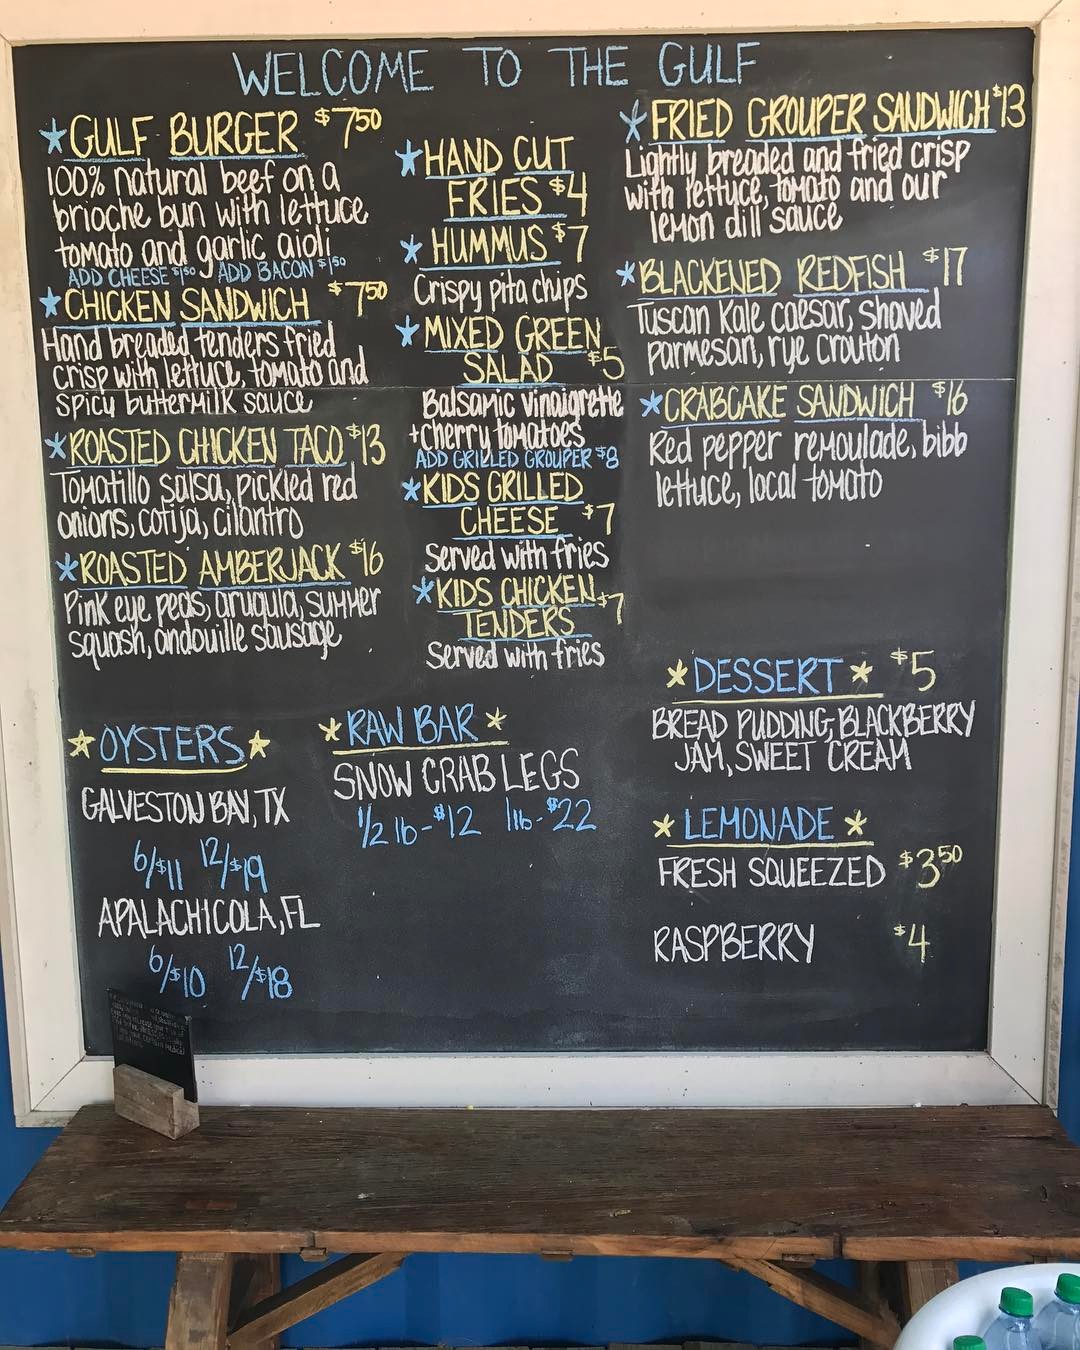 WELCOME TO THE GULF
GULF BURGER $7.50
100% natural beef on a
brioche bun with lettuce
tomato and garlic aioli
ADD CHEESE $1.50 ADD BACON $1.50
CHICKEN SANDWICH $7.50
Hand breaded tenders fried
crisp with lettuce, tomato and
spicy buttermilk sauce
ROASTED CHICKEN TACO $13
Tomatillo salsa, pickled red
onions, cotija, cilantro
ROASTED AMBERJACK $16
Pink eye peas, arugula, summer
squash, andouille sausage
HAND CUT
FRIES $4
HUMMUS $7
Crispy pita chips
MIXED GREEN
SALAD $5
Balsamic vinaigrette
+cherry tomatoes
ADD GRILLED GROUPER $8
KIDS GRILLED
CHEESE $7
Served with fries
KIDS CHICKEN
TENDERS $7
Served with fries
FRIED GROUPER SANDWICH $13
Lightly breaded and fried crisp
with lettuce, tomato and our
lemon dill sauce
BLACKENED REDFISH $17
Tuscan Kale caesar, shaved
parmesan, rye crouton
CRABCAKE SANDWICH $16
Red pepper remoulade, bibb
lettuce, local tomato
OYSTERS
GALVESTON BAY, TX
6/$11 12/$19
APALACHICOLA, FL
6/$10 12/$18
RAW BAR
SNOW CRAB LEGS
1/2 lb-$12 1lb-$22
DESSERT $5
BREAD PUDDING, BLACKBERRY
JAM, SWEET CREAM
LEMONADE
FRESH SQUEEZED $3.50
RASPBERRY $4